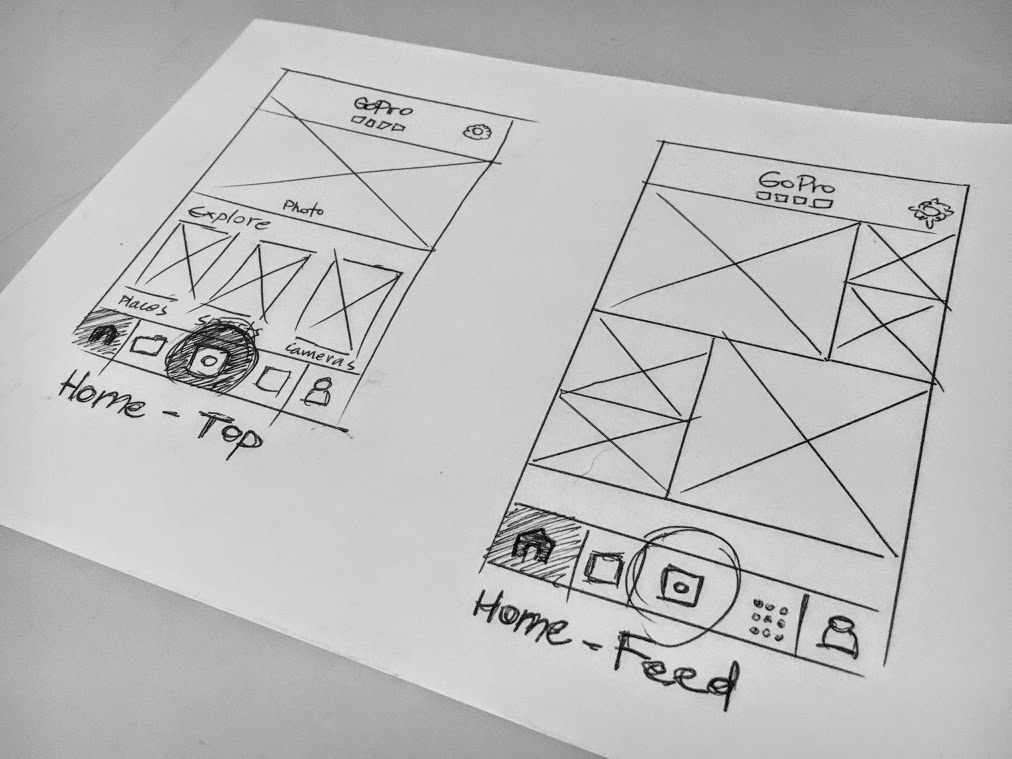 GoPro
Photo
Explore
Places
Cameras
Home - Top
GoPro
Home - Feed